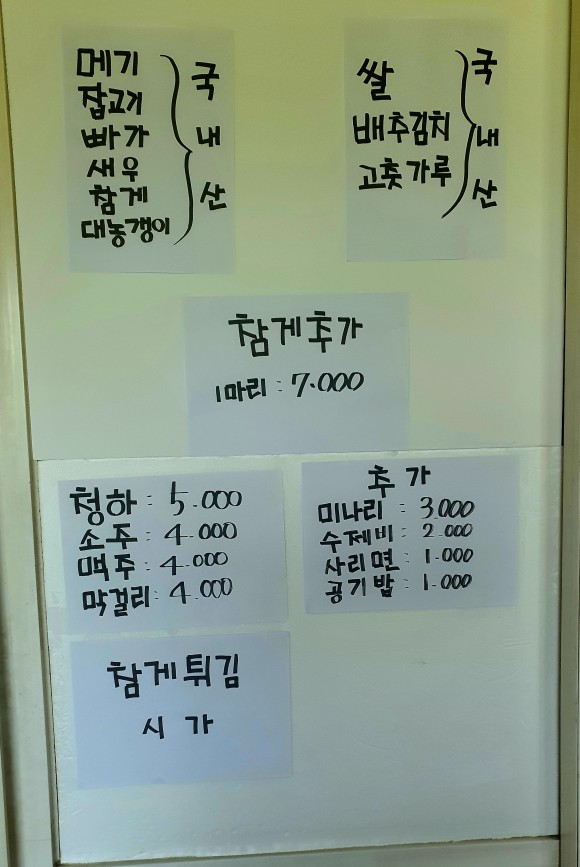 메기
잡고기
빠가
새우
참게
대농갱이
국내산
쌀
배추김치
고춧가루
국내산
참게추가
1마리 : 7.000
청하 : 5.000
소주 : 4.000
맥주 : 4.000
막걸리 : 4.000
추가
미나리 : 3.000
수제비 : 2.000
사리면 : 1.000
공기밥 : 1.000
참게튀김
시가